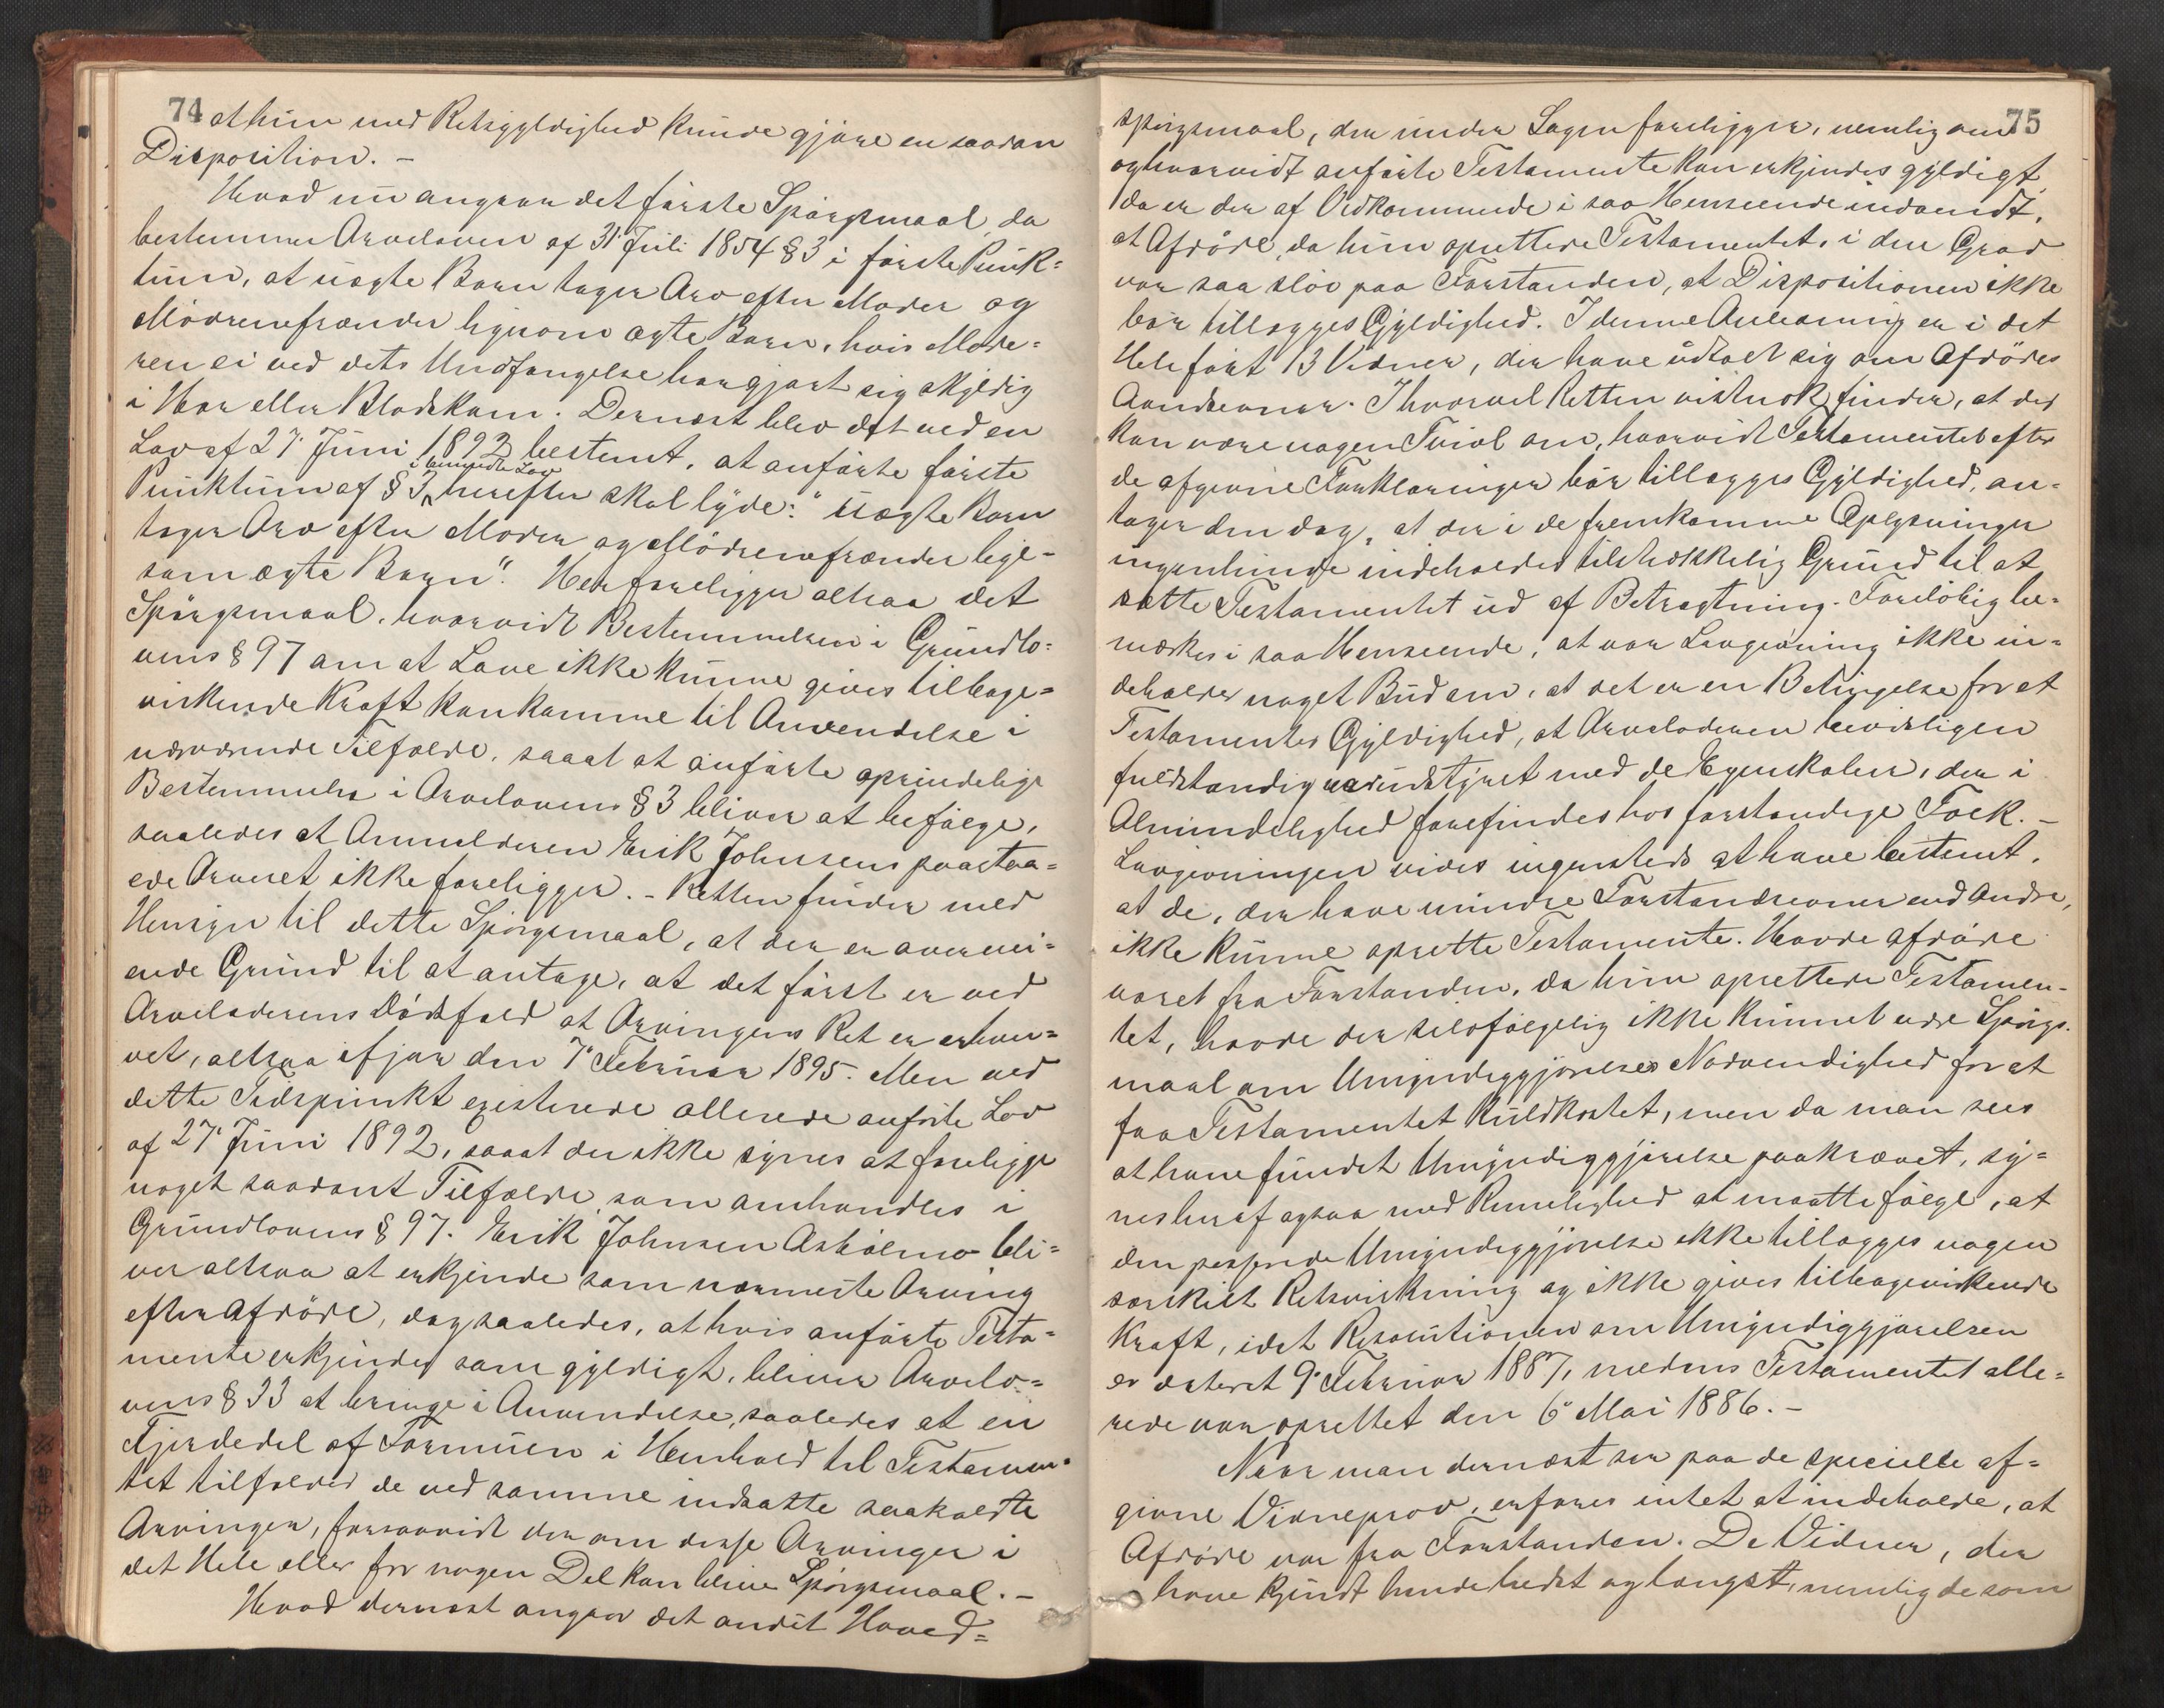 74
at hun med Retsgyldighed kunde gjøre en saadan
Disposition. –
Hvad nu angaar det første Spørgsmaal, da
bestemmer Arveloven af 31' Juli 1854 § 3 i første Punk=
tum, at uægte Børn tager Arv efter Moder og
Mödrenefrænder ligesom ægte Børn, hvis Mode=
ren ei ved dets Undfangelse har gjort sig skyldig
i Hor eller Blodskam. Dernæst blev det ved en
Lov af 27' Juni 1892 bestemt, at anførte første
Punktum af § 3 i benævnte Lov herefter skal lyde: "Uægte Børn
tager Arv efter Moder og Mödrenefrænder lige=
som ægte Børn". Her foreligger altsaa det
Spørgsmaal, hvorvidt Bestemmelsen i Grundlo=
vens § 97 om at Love ikke kunne gives tilbage=
virkende Kraft kan komme til Anvendelse i
nærværende Tilfælde, saaat at anførte oprindelige
Bestemmelse i Arvelovens § 3 bliver at befølge,
saaledes at Anmelderen Erik Johnsens paastaa=
ede Arveret ikke foreligger. – Retten finder med
Hensyn til dette Spørgsmaal, at der er overvei=
ende Grund til at antage, at det først er ved
Arveladerens Dödsfald at Arvingens Ret er erhver=
vet, altsaa ifjor den 7' Februar 1895. Men ved
dette Tidspunkt existerede allerede anførte Lov
af 27' Juni 1892, saaat der ikke synes at foreligge
noget saadant Tilfælde, som omhandles i
Grundlovens § 97. Erik Johnsen Asholmo bli=
ver altsaa at erkjende som nærmeste Arving
efter Afdöde, dog saaledes, at hvis anførte Testa=
mente erkjendes som gyldigt, bliver Arvelo=
vens § 33 at bringe i Anvendelse, saaledes at en
Fjerdedel af Formuen i Henhold til Testamen=
tet tilfalder de ved samme indsatte saakaldte
Arvinger, forsaavidt der om disse Arvinger i
det Hele eller for nogen Del kan blive Spørgsmaal. –
Hvad dernæst angaar det andet Hoved=
75
spörgsmaal, der under Sagen foreligger, nemlig om
og hvorvidt anførte Testamente kan erkjendes gyldigt,
da er der af Vedkommende i saa Henseende indvendt,
at Afdöde, da hun oprettede Testamentet, i den Grad
var saa slöv paa Forstanden, at Dispositionen ikke
bør tillægges Gyldighed. I denne Anledning er i det
Hele ført 13 Vidner, der have udtalt sig om Afdödes
Aandsevner. Ihvorvel Retten vistnok finder, at der
kan være nogen Tvivl om, hvorvidt Testamentet efter
de afgivne Forklaringer bør tillægges Gyldighed, an=
tager den dog, at der i de fremkomne Oplysninger
ingenlunde indeholdes tilstrækkelig Grund til at
sætte Testamentet ud af Betragtning. Foreløbig be=
mærkes i saa Henseende, at vor Lovgivning ikke in=
deholder noget Bud om, at det er en Betingelse for at
Testamentes Gyldighed, at Arveladeren bevisligen
fuldstændig var udstyret med de Egenskaber, der i
Almindelighed forefindes hos forstandige Folk. –
Lovgivningen vides ingensteds at have bestemt,
at de, der have mindre Forstandsevner end Andre,
ikke kunne oprette Testamente. Havde afdöde
været fra Forstanden, da hun oprettede Testamen=
tet, havde der selvfølgelig ikke kunnet være Spörgs=
maal om Umyndiggjørelses Nødvendighed for at
faa Testamentet kuldkastet, men da man sees
at have fundet Umyndiggjørelse paakrævet, sy=
nes heraf ogsaa med Rimelighed at maatte følge, at
den passerede Umyndiggjørelse ikke tillægges nogen
særskilt Retsvirkning og ikke gives tilbagevirkende
Kraft, idet Resolutionen om Umyndiggjørelsen
er dateret 9' Februar 1887, medens Testamentet alle=
rede var oprettet den 6' Mai 1886. –
Naar man dernæst ser paa de specielle af=
givne Vidneprov, erfares intet at indeholde, at
Afdöde var fra Forstanden. De Vidner, der
have kjendt hende bedst og længst, nemlig de som